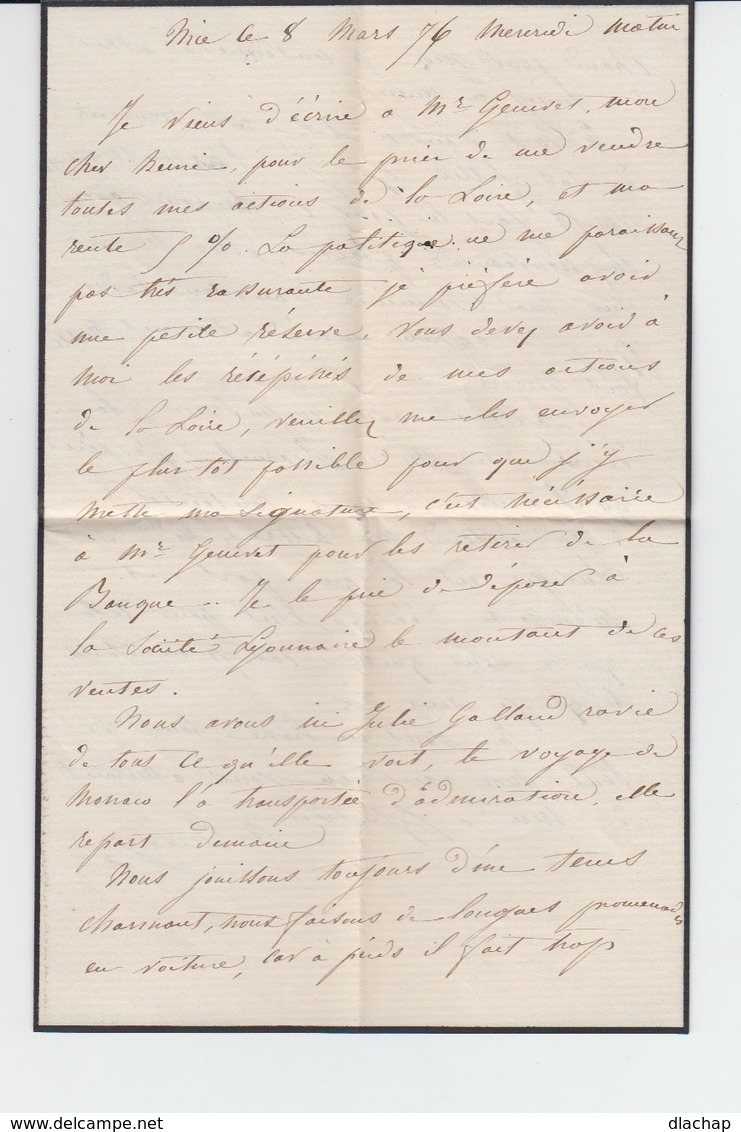 Nice le 8 Mars 76 Mercredi matin
Je viens d'écrire à Mr Genevet, mon
cher Remi, pour le prier de me vendre
toutes mes actions de la Loire, et ma
rente 5 %. La politique ne me paraissant
pas très rassurante je préfère avoir
une petite réserve. Vous devez avoir à
moi les récépissés de mes actions
de la Loire, veuillez me les envoyer
le plus tôt possible pour que j'y
mette ma signature, c'est nécéssaire
à Mr Genevet pour les retirer de la
Banque. Je le prie de déposer à
la Société Lyonnaise le montant de ces
ventes.
Nous avons ici Julie Galland ravie
de tout ce qu'elle voit, le voyage de
Monaco l'a transportée d'admiration, elle
repart demain
Nous jouissons toujours d'un tems
charmant, nous faisons de longues promenades
en voiture, car à pieds il fait trop
© www.delcampe.net
dlachap